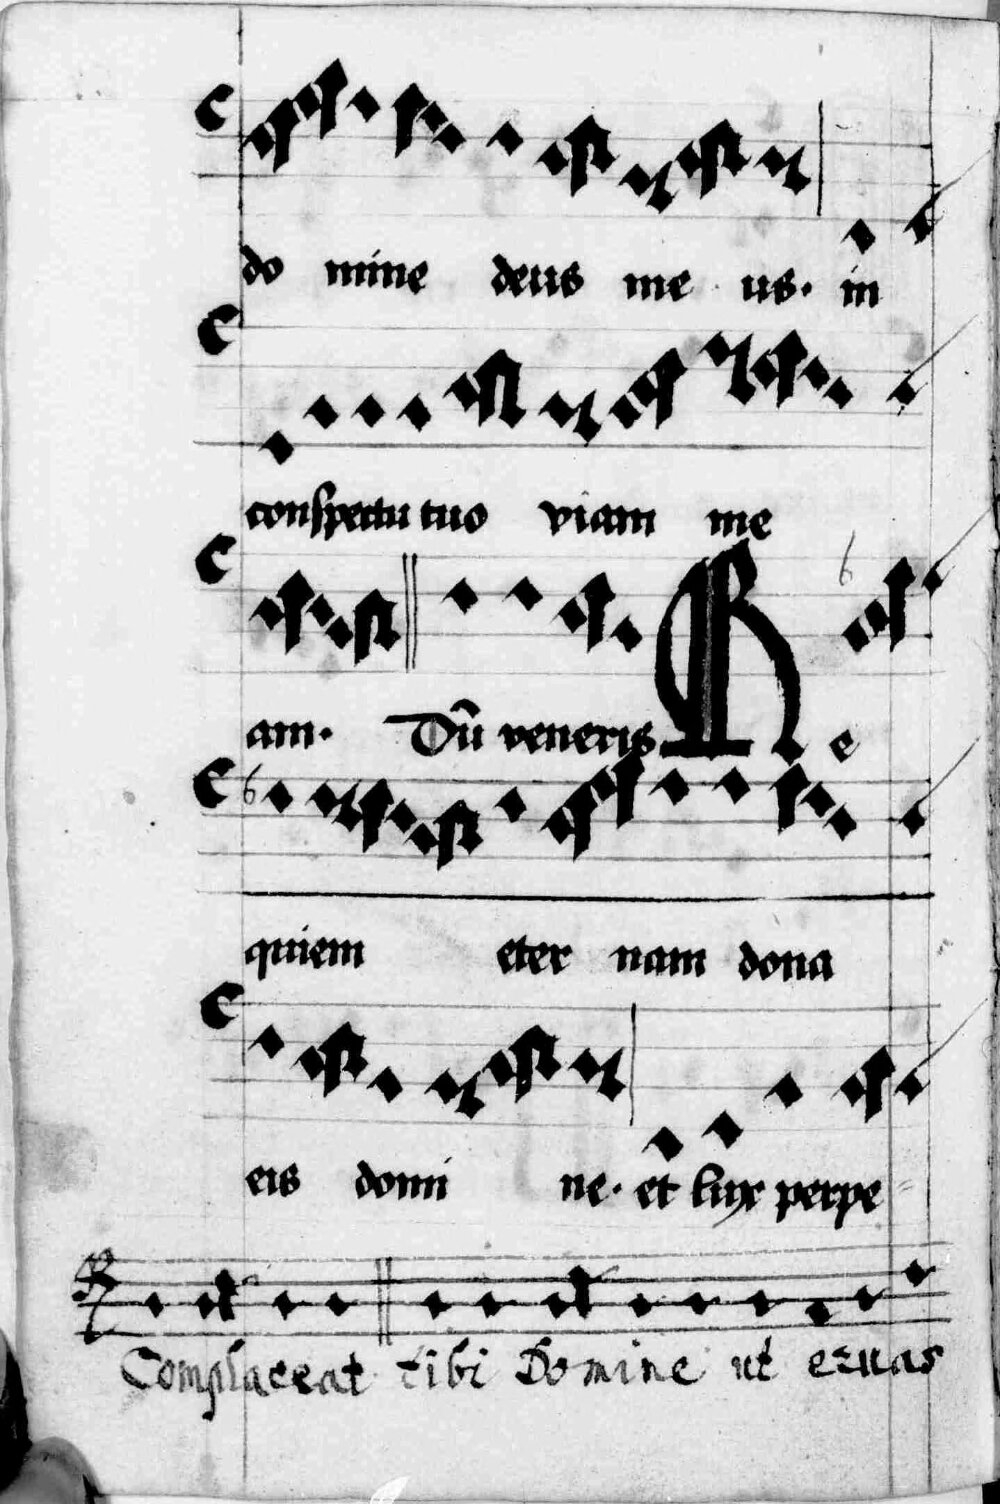 do mine deus me us. in
conspectu tuo viam me
am. Dū veneris Re
quiem eter nam dona
eis domi ne. et lux perpe
Complaceat tibi Domine ut eruas